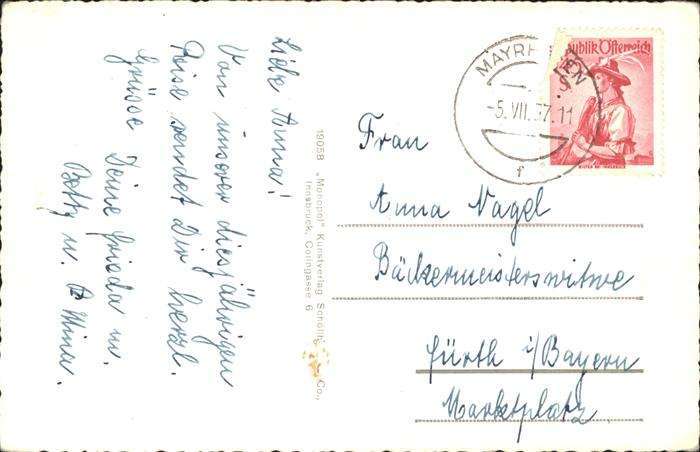 Liebe Anna!
Von unserer diesjährigen
Reise sendet Dir herzl.
Grüsse Deine Frieda u.
Betty u.
19058 „Monopol" Kunstverlag Co.,
Innsbruck, Colingasse 6
MAYRH EN
-5. VII. 57. 11
f
publik Österreich
Frau
Anna Nagel
Bäckermeisterswitwe
Fürth i/Bayern
Marktplatz